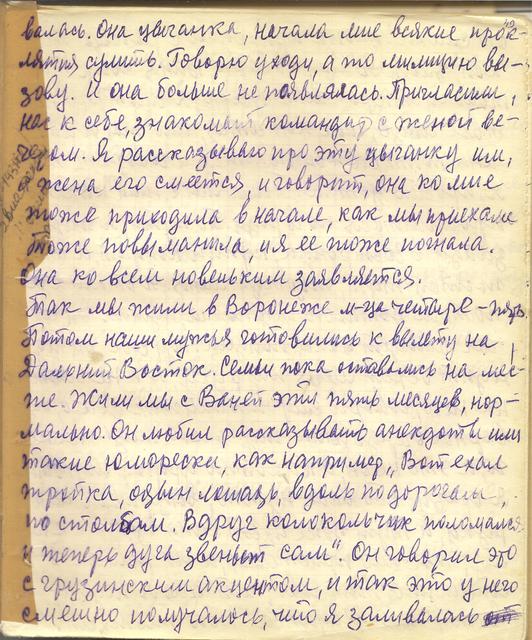 валась. Она цыганка, начала мне всякие прок-
лятия сулить. Говорю уходи, а то милицию вы-
зову. и она больше не появлялась. Пригласили,
нас к себе, знакомый командир с женой ве-
ером. Я рассказываю про эту цыганку им,
а жена его смеется, и говорит, она ко мне
тоже приходила в начале, как мы приехали
тоже повыманила, и я ее тоже погнала.
Она ко всем новеньким заявляется.
Так мы жили в Воронеже м-ца четыре-пять.
Потом наши мужья готовились к вылету на
Дальний Восток. Семьи пока оставались на мес-
те. Жили мы с Ваней эти пять месяцев, нор-
мально. Он любил рассказывать анекдоты или
такие юморески, как например, „Вот ехал
тройка, одын лошадь, вдоль по дорогам,
по столбам. Вдруг колокольчик поломался
и теперь дуга звеныт сам“. Он говорил это
с грузинским акцентом, и так это у него
смешно получалось, что я заливалась